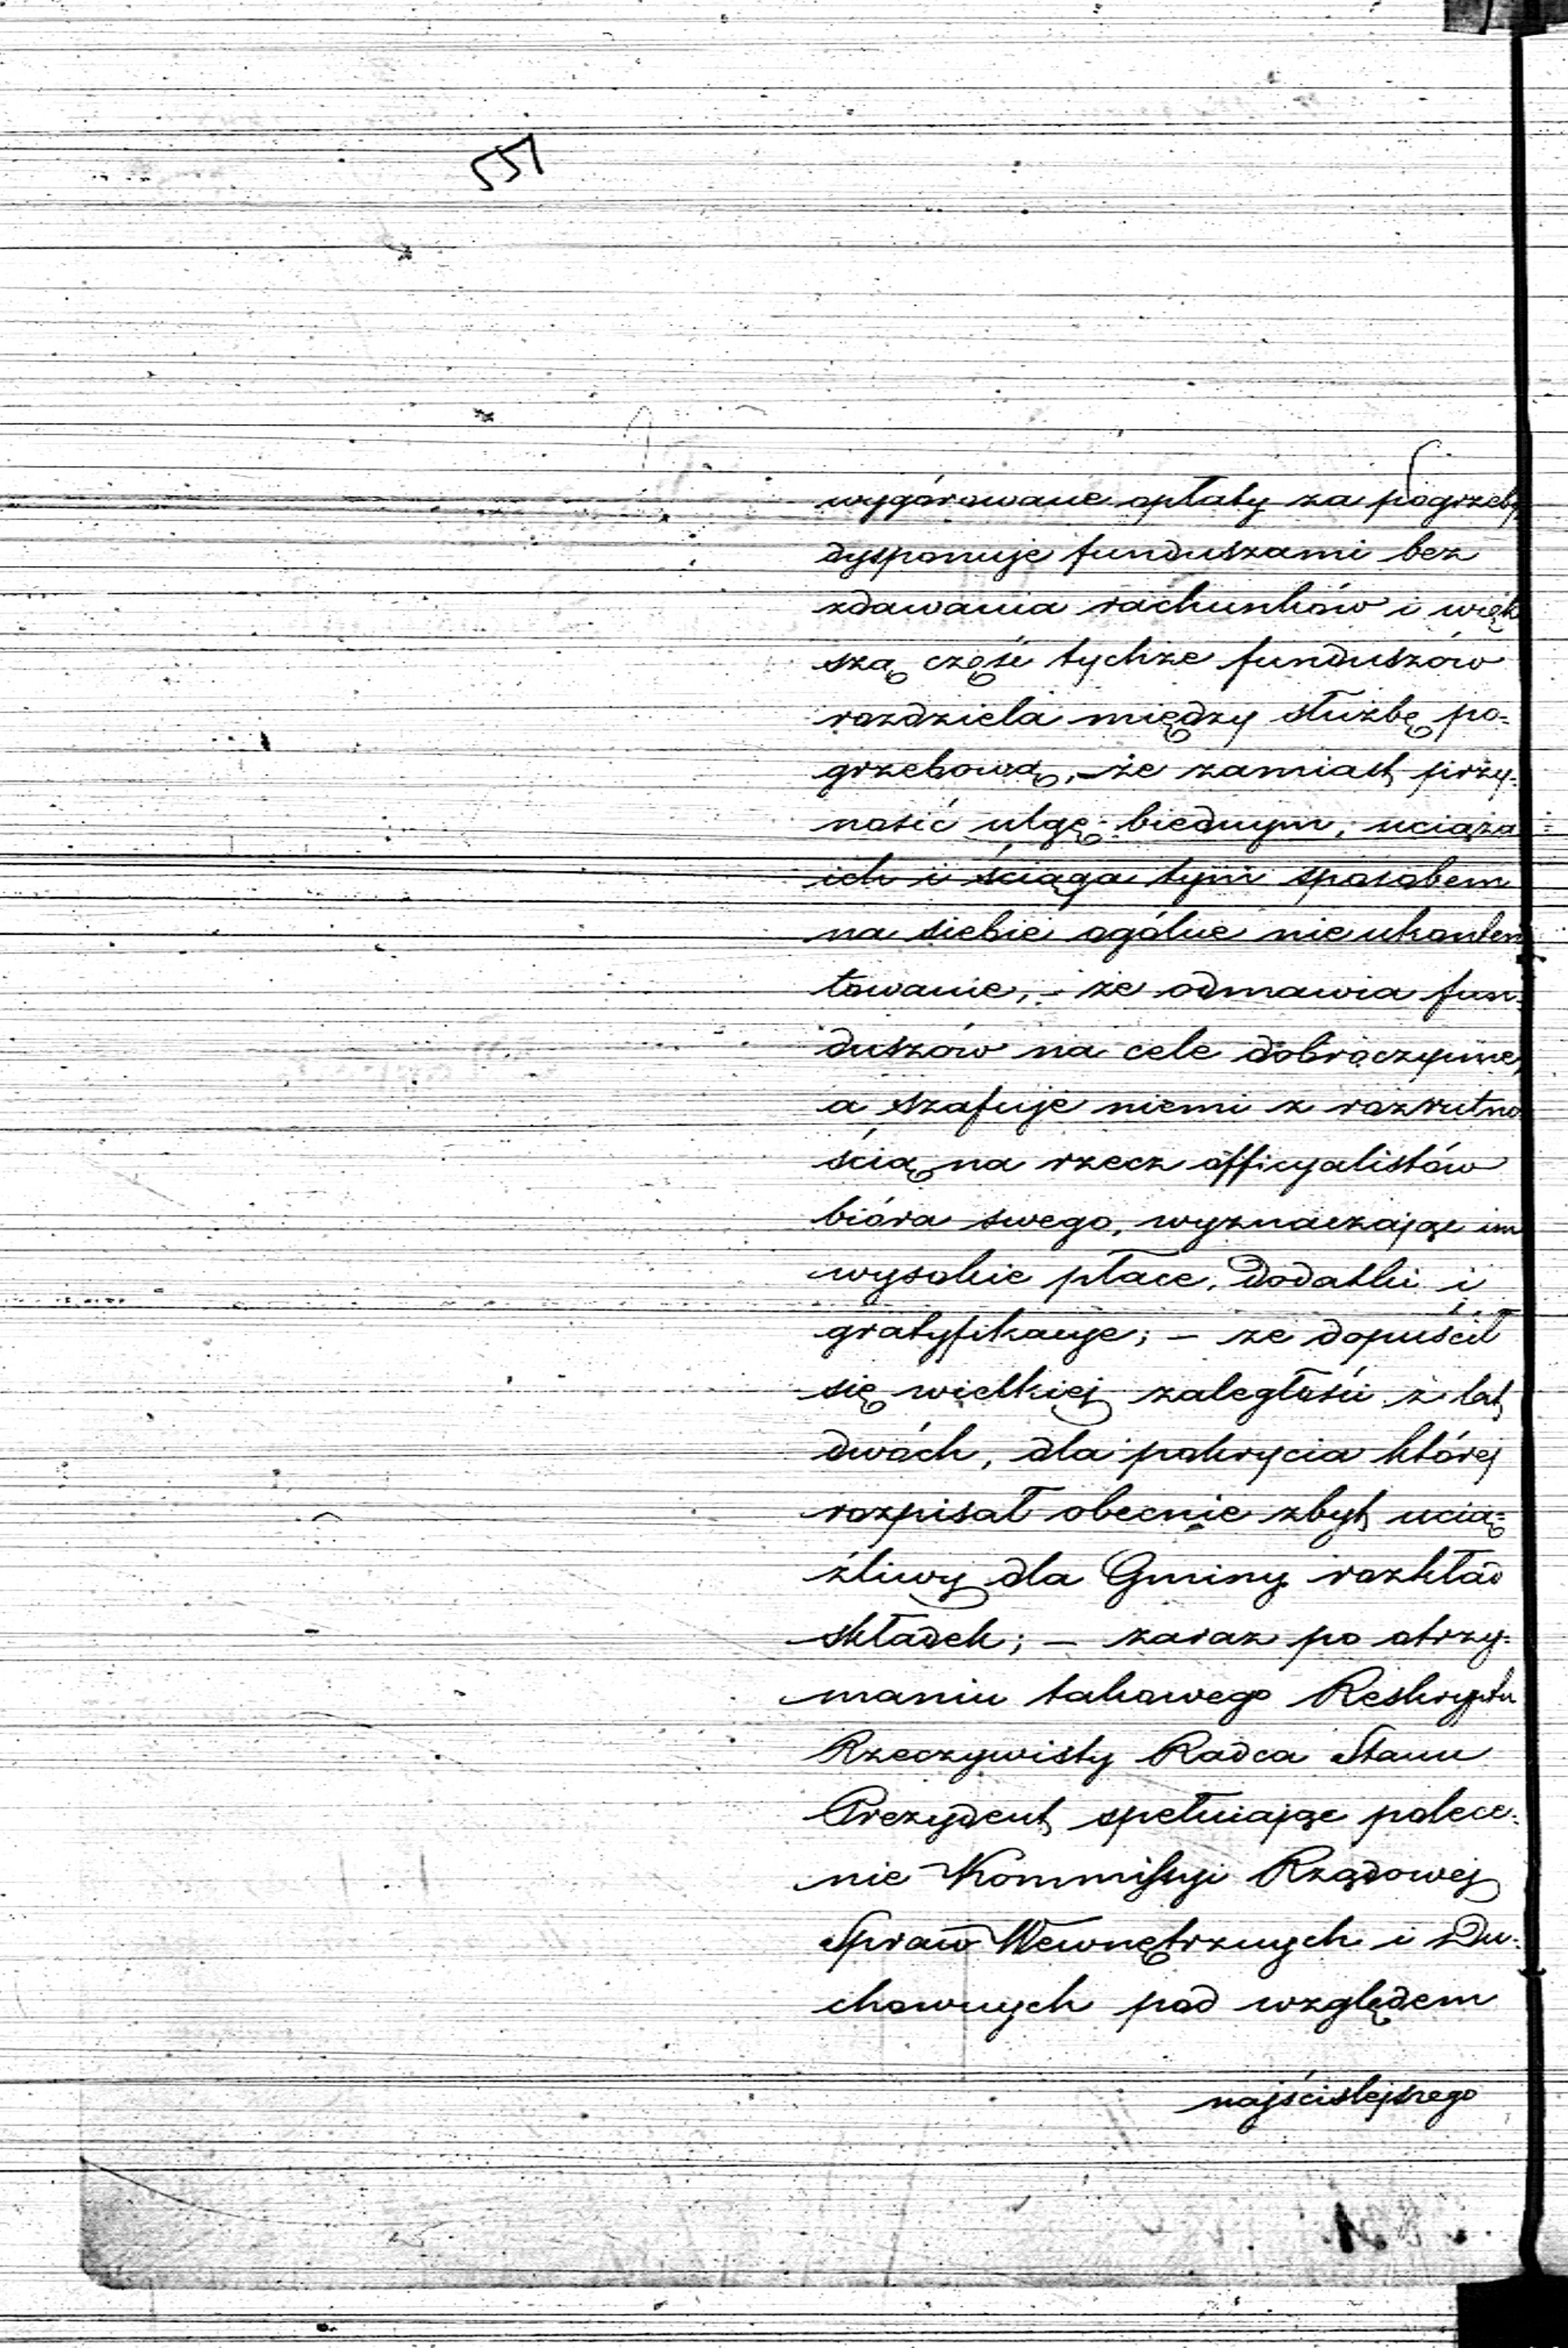 557
wygórowane opłaty za pogrzeby
dysponuje funduszami bez
zdawania rachunków i więk
szą część tychże funduszów
rozdziela między służbę po=
grzebową, – że zamiast przy-
nosić ulgę biednym, uciąża
ich i ściąga tym sposobem
na siebie ogólne nieukonten
towanie, – że odmawia fun-
duszów na cele dobroczynne,
a szafuje niemi z rozrutno
ścią na rzecz officyalistów
bióra swego, wyznaczając im
wysokie płace, dodatki i
gratyfikacye; – że dopuścił
się wielkiej zaległości z lat
dwóch, dla pokrycia której
rozpisał obecnie zbyt ucią=
żliwy dla Gminy rozkład
składek; – zaraz po otrzy-
maniu takowego Reskryptu
Rzeczywisty Radca Stanu
Prezydent spełniając polece-
nie Kommissyi Rządowej
Spraw Wewnętrznych i Du-
chownych pod względem
najściślejszego